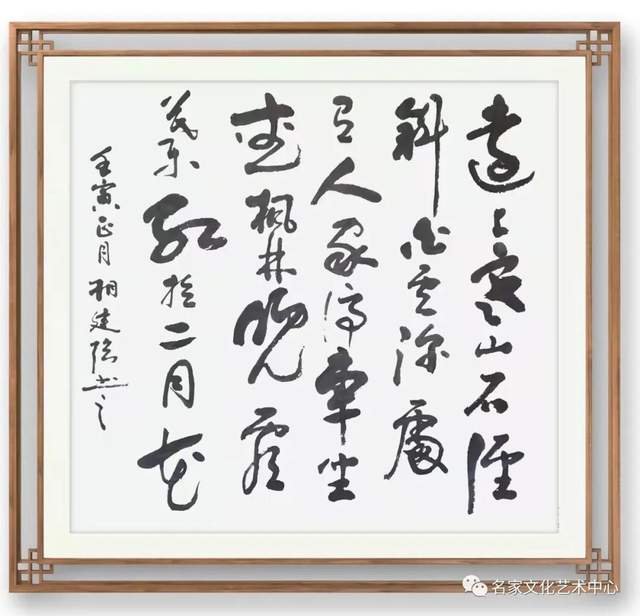 遠上寒山石徑
斜白云深處
有人家停車坐
愛楓林晚霜
葉紅於二月花
壬寅正月相建书之
名家文化艺术中心